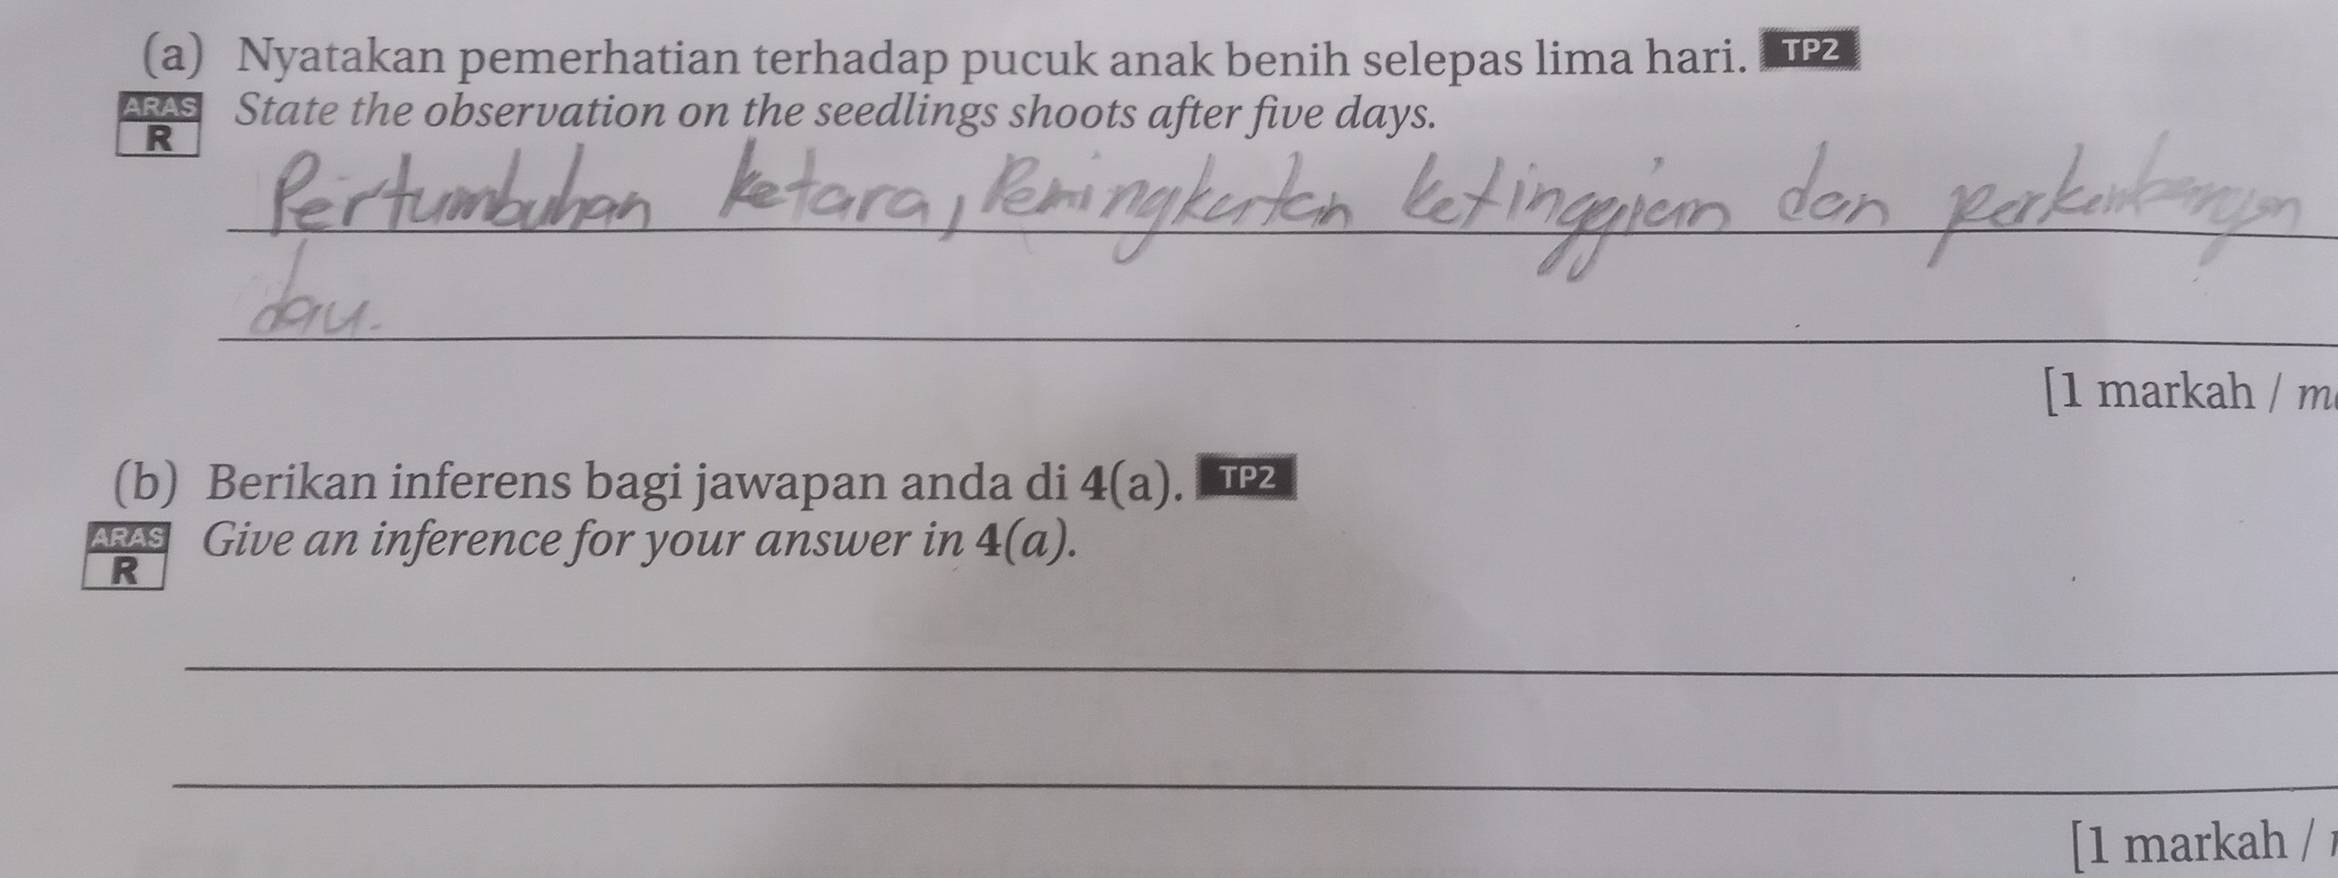 (a) Nyatakan pemerhatian terhadap pucuk anak benih selepas lima hari. TP2
ARAS R State the observation on the seedlings shoots after five days.
Pertumbuhan ketara, Peningkatan ketinggian dan perkembangan
dau.
[1 markah / m
(b) Berikan inferens bagi jawapan anda di 4(a). TP2
ARAS R Give an inference for your answer in 4(a).
[1 markah /